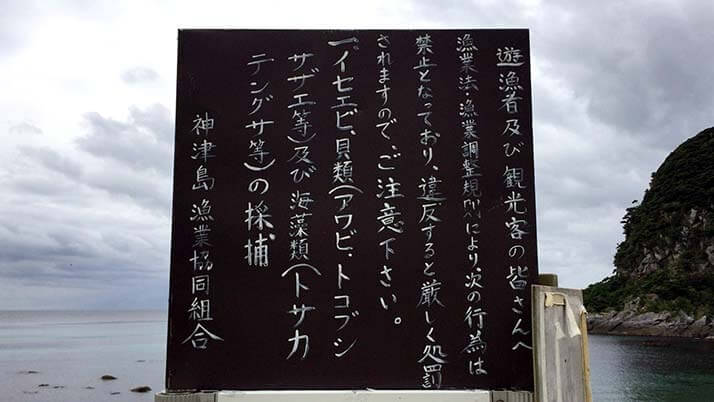 遊漁者及び観光客の皆さんへ
漁業法・漁業調整規則により、次の行為は
禁止となっており、違反すると厳しく処罰
されますので、ご注意下さい。
一、イセエビ、貝類(アワビ、トコブシ
サザエ等)及び海藻類(トサカ
テングサ等)の採捕
神津島漁業協同組合